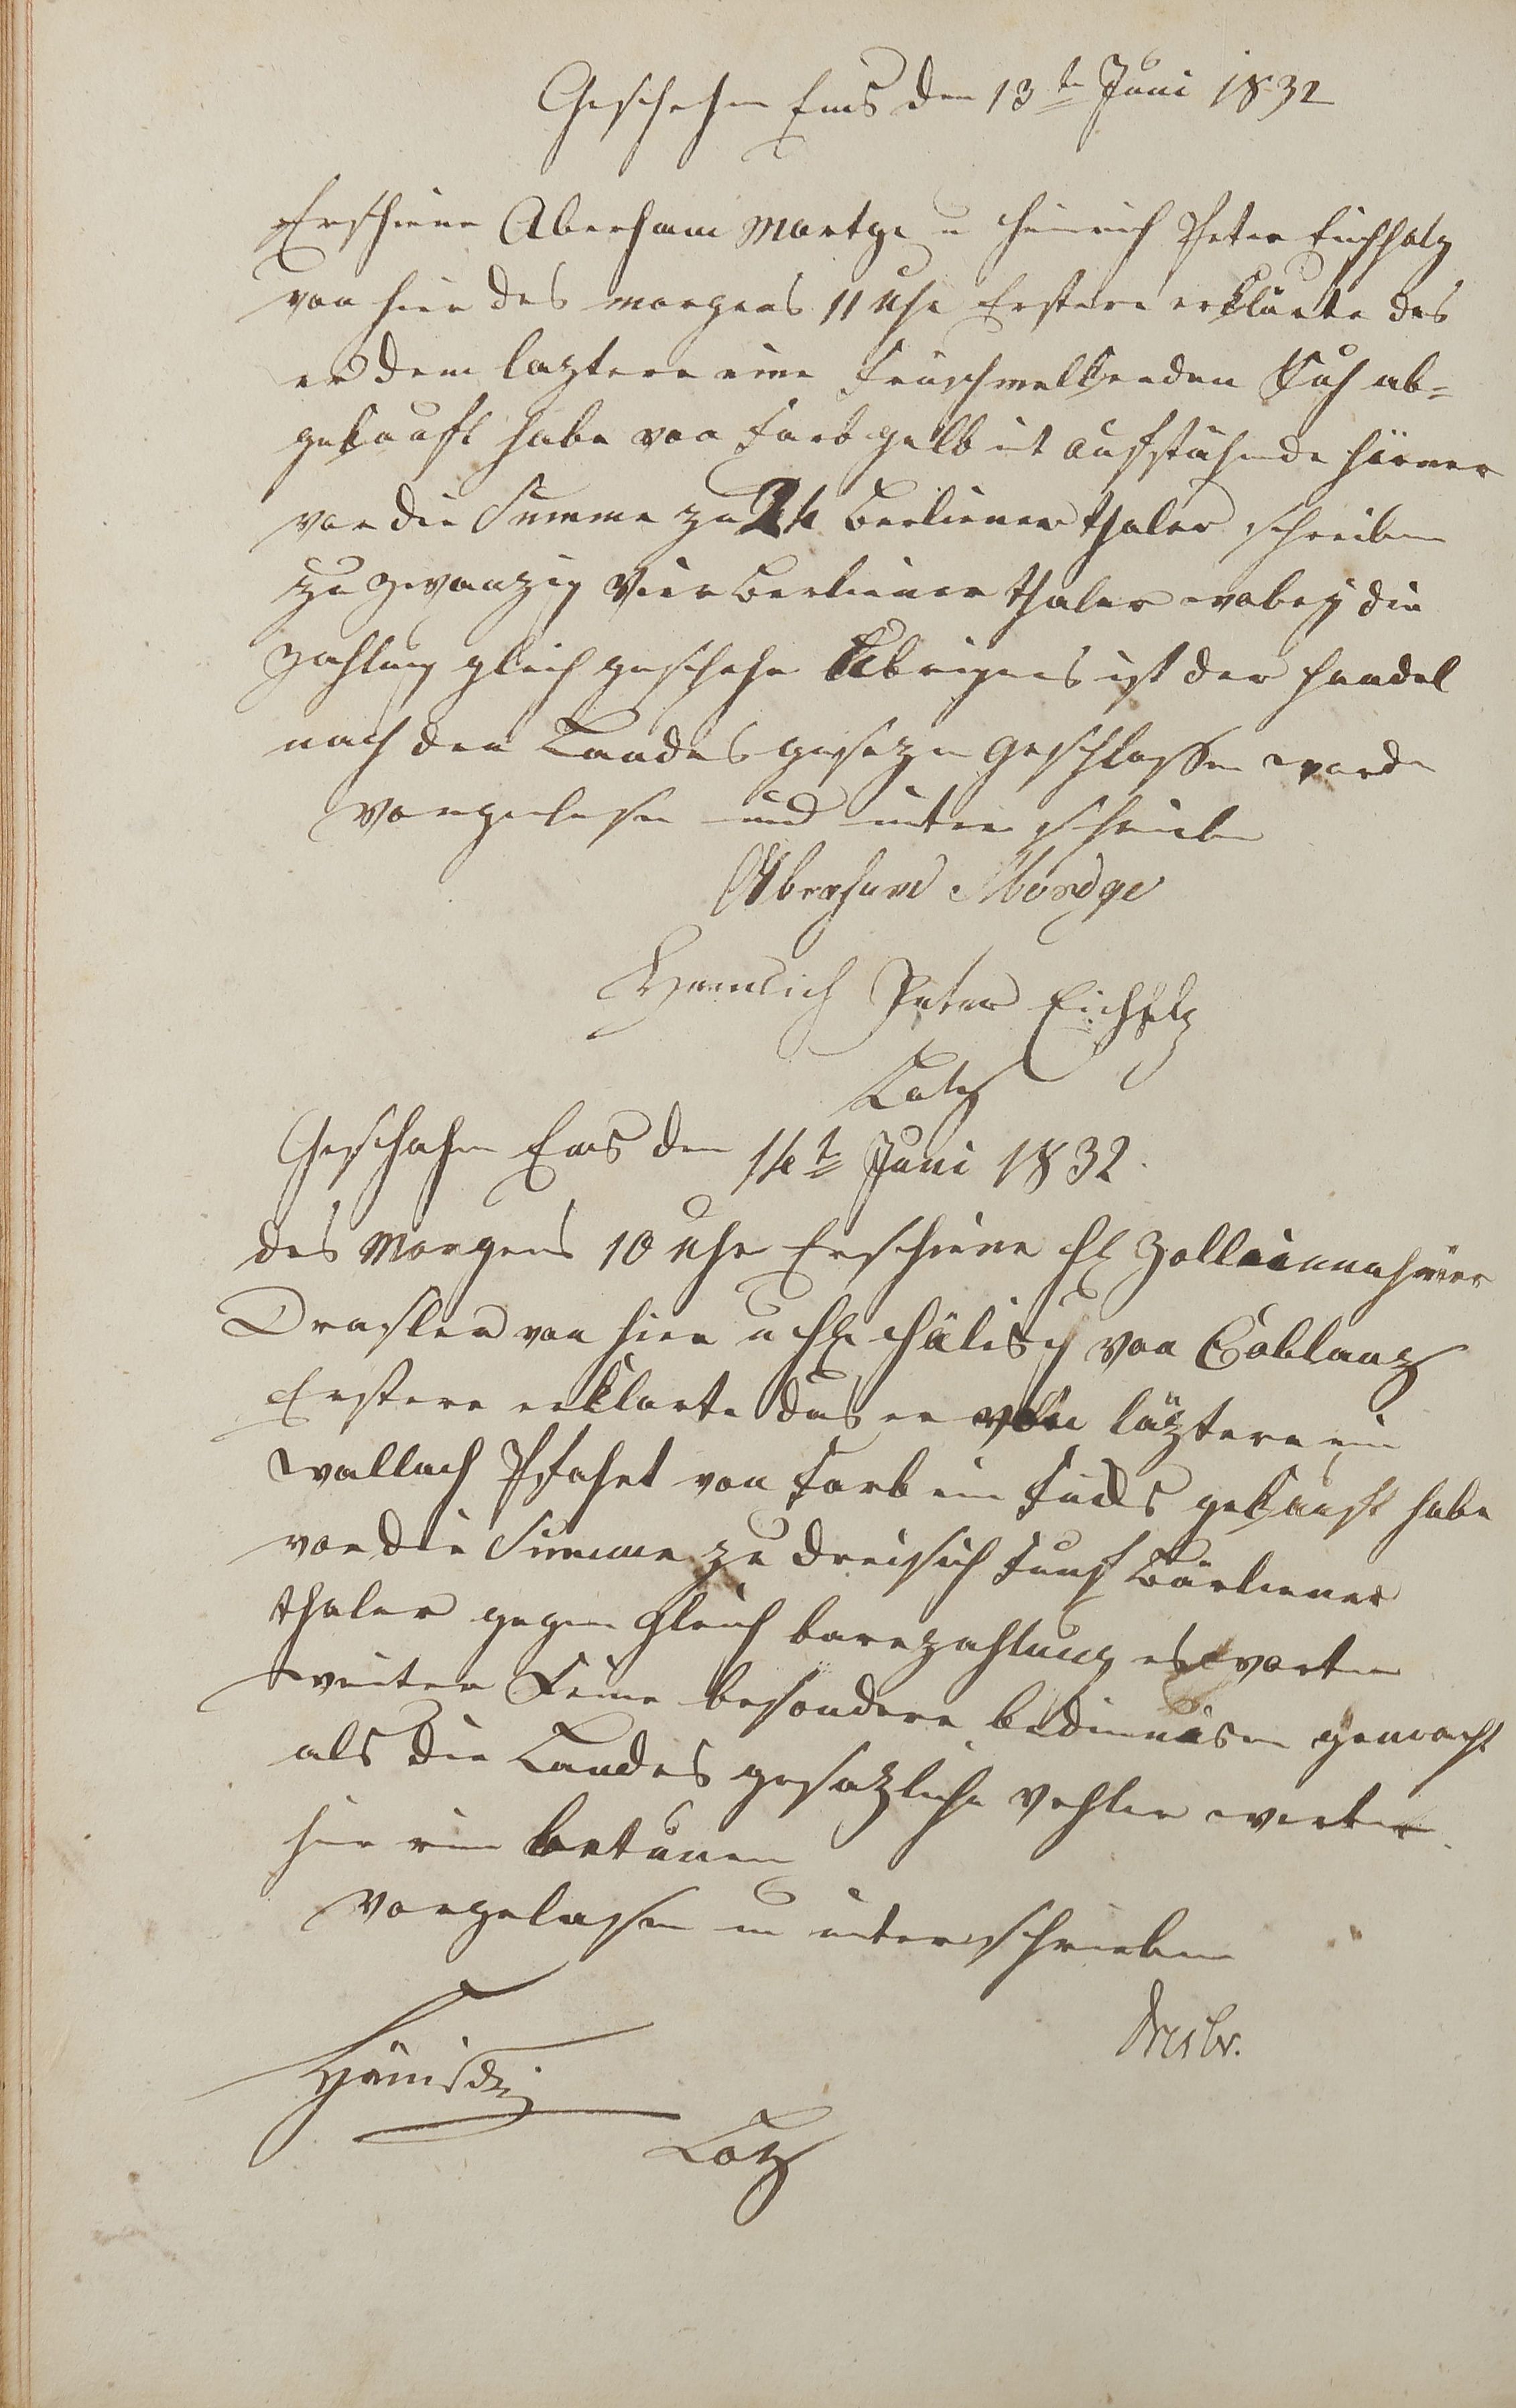 Geschehen Ems den 13te Juni 1832
Erschiene Aberham Mortge u Heinrich Peter Eichholz
von hier des morgens 11 Uhr Erstere erklärte das
er dem laztere eine Frischmelkenden Kuh ab-
gekauft habe von Farb gelb mit aufstähende Hörner
vor die Summe zu 24 Berliener thaler schreiben
zu zwanzig Vier Berliener thaler wobey die
Zahlung gleich geschehe Übrigens ist der Handel
nach den Landes gesezen geschlossen worde
Vorgelesen und unter schrieben
Abraham Mordge
Heinrich Peter Eichholz
Lotz
Geschehen Ems den 14te Juni 1832.
des Morgens 10 Uhr Erschiene H. Zolleinnehmer
Dresler von hier u H. von Coblanz
Erstere erklarte das er von läztere ein
wallach Pfahrt von Farb ein Fucks gekauft habe
vor die Summe zu dreisich Funf Bärliener
thaler gegen gleich barezahlung es worten
weiter Keine besondere bedinnisen gemacht
als die Landes gesäzliche Vehler werten
hier ein betunen
Vorgelassen u unterschrieben
Dresler.
Lotz